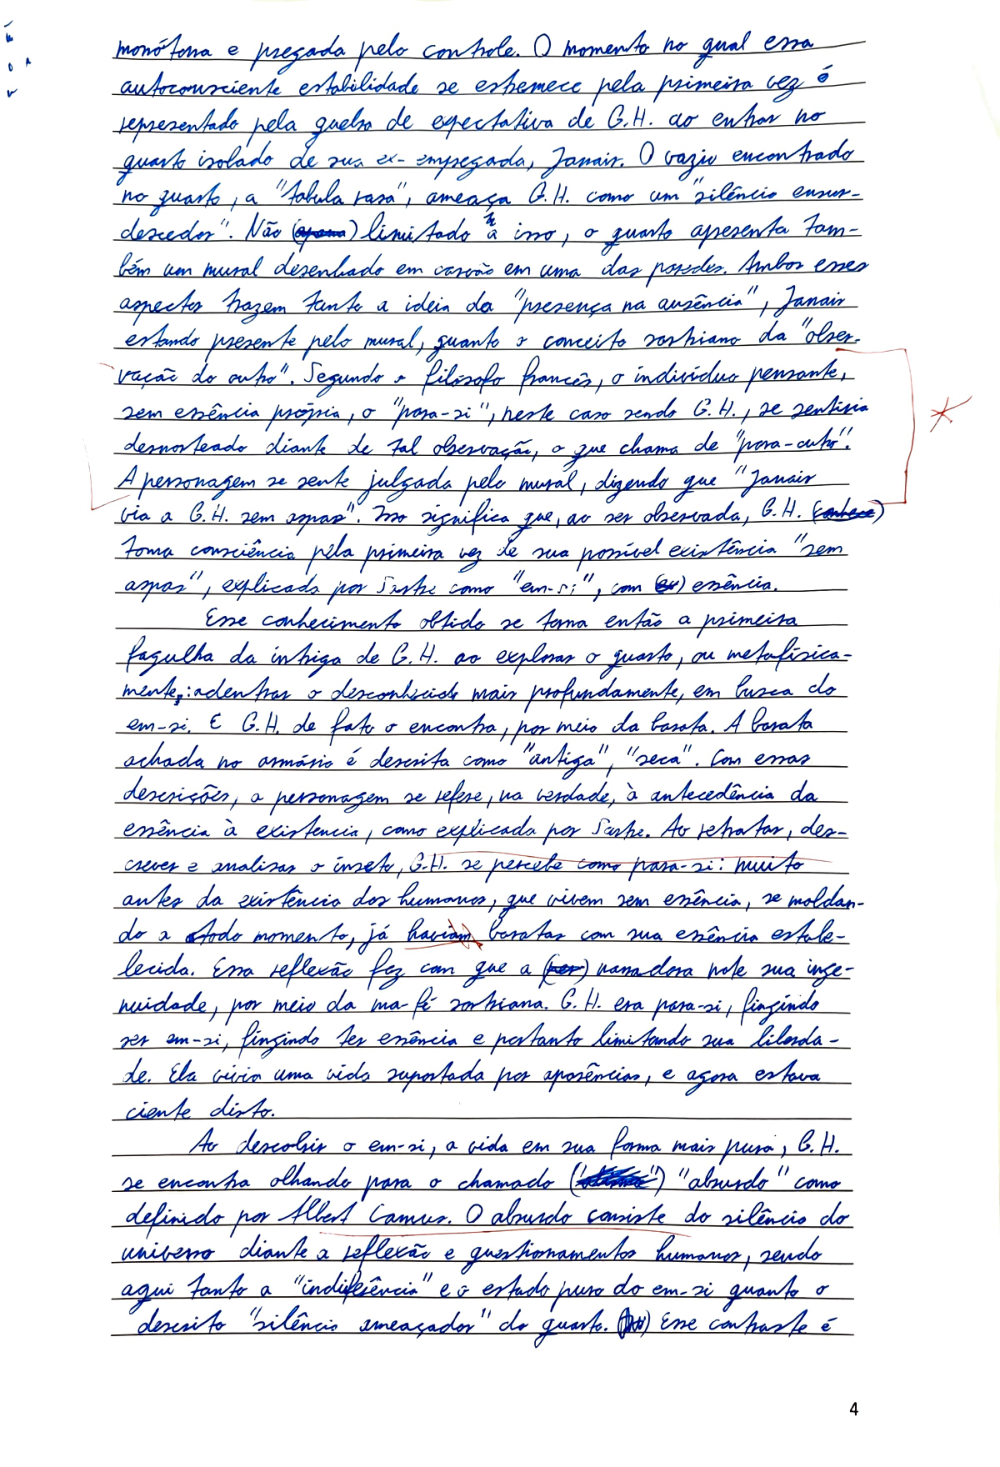 monótona e pregada pelo controle. O momento no qual essa
autoconsciente estabilidade se estremece pela primeira vez é
representado pela quebra de expectativa de G.H. ao entrar no
quarto isolado de sua ex-empregada, Janair. O vazio encontrado
no quarto, a "tabula rasa", ameaça G.H. como um "silêncio ensur-
decedor". Não (apena) limitado à isso, o quarto apresenta tam-
bém um mural desenhado em carvão em uma das paredes. Ambos esses
aspectos trazem tanto a ideia da "presença na ausência", Janair
estando presente pelo mural, quanto o conceito sartriano da "obser-
vação do outro". Segundo o filósofo francês, o indivíduo pensante,
sem essência própria, o "para-si", neste caso sendo G.H., se sentiria
desnorteado diante de tal observação, o que chama de "para-outro".
A personagem se sente julgada pelo mural, dizendo que "Janair
via a G.H. sem aspas". Isso significa que, ao ser observada, G.H. (conhece)
toma consciência pela primeira vez de sua possível existência "sem
aspas", explicada por Sartre como "em-si", com (ex) essência.
Esse conhecimento obtido se torna então a primeira
fagulha da intriga de G.H. ao explorar o quarto, ou metafisica-
mente,: adentrar o desconhecido mais profundamente, em busca do
em-si. E G.H. de fato o encontra, por meio da barata. A barata
achada no armário é descrita como "antiga", "seca". Com essas
descrições, a personagem se refere, na verdade, à antecedência da
essência à existencia, como explicada por Sartre. Ao retratar, des-
crever e analisar o inseto, G.H. se percebe como para-si: muito
antes da existência dos humanos, que vivem sem essência, se moldan-
do a todo momento, já haviam baratas com sua essência estabe-
lecida. Essa reflexão fez com que a (per) narradora note sua inge-
nuidade, por meio da ma-fé sartriana. G.H. era para-si, fingindo
ser em-si, fingindo ter essência e portanto limitando sua liberda-
de. Ela vivia uma vida suportada por aparências, e agora estava
ciente disto.
Ao descobrir o em-si, a vida em sua forma mais pura, G.H.
se encontra olhando para o chamado "absurdo" como
definido por Albert Camus. O absurdo consiste do silêncio do
universo diante a reflexão e questionamentos humanos, sendo
aqui tanto a "indiferência" e o estado puro do em-si quanto o
descrito "silêncio ameaçador" do quarto. Esse contraste é
4